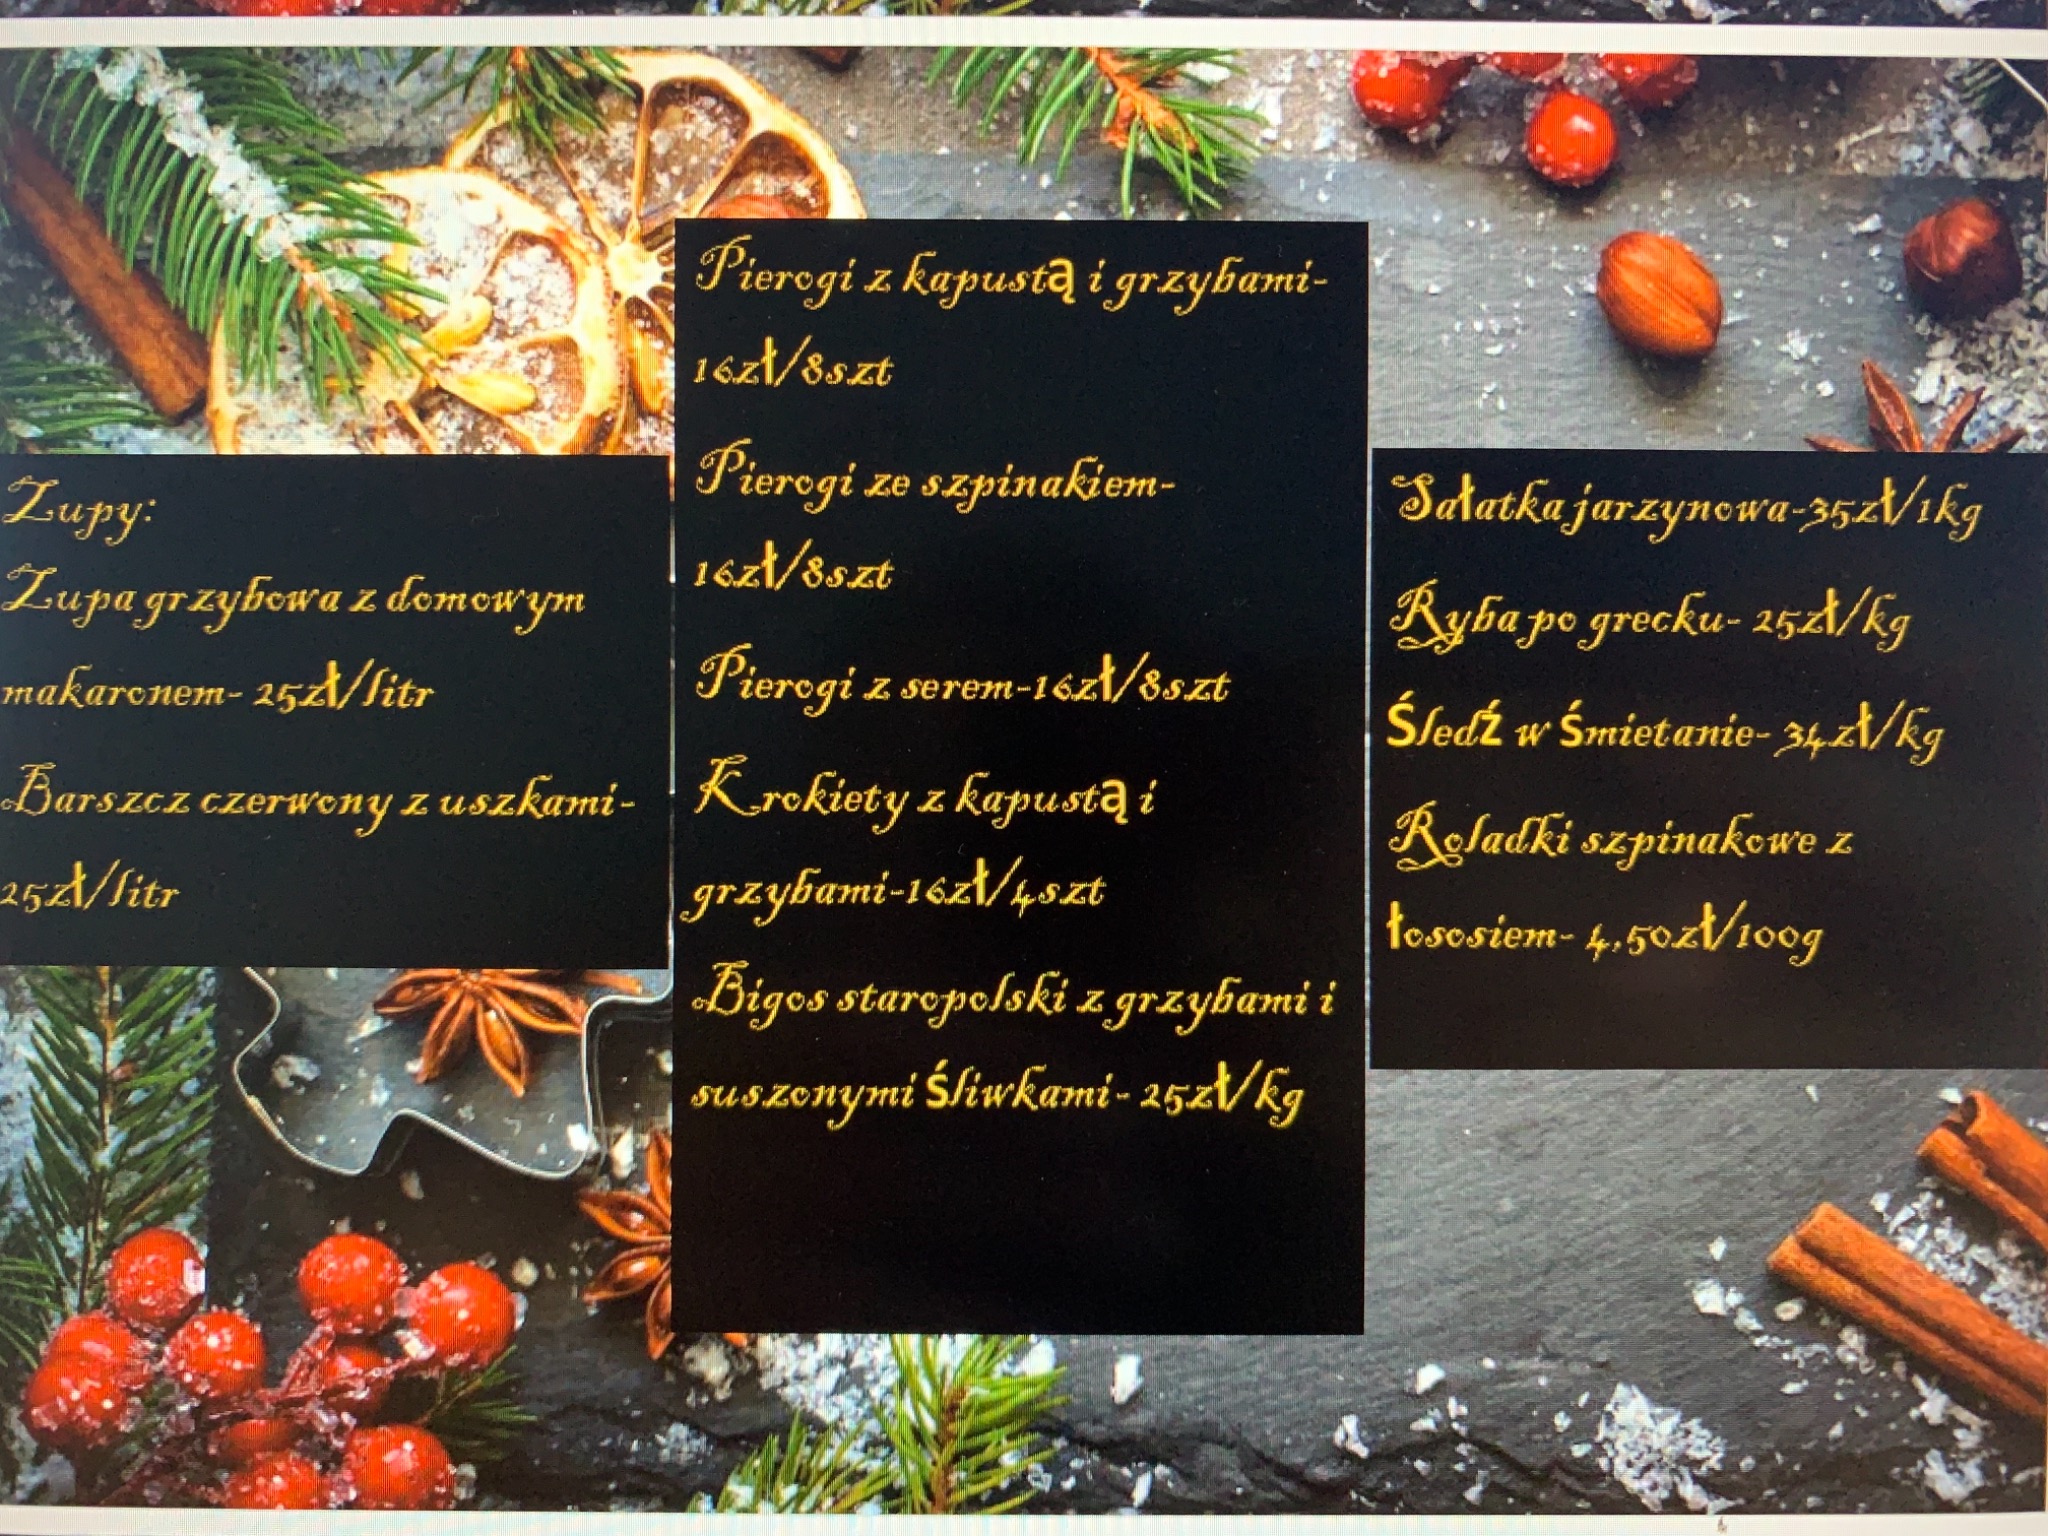 Zupy:
Zupa grzybowa z domowym
makaronem- 25zł/litr
Barszcz czerwony z uszkami-
25zł/litr
Pierogi z kapustą i grzybami-
16zł/8szt
Pierogi ze szpinakiem-
16zł/8szt
Pierogi z serem-16zł/8szt
Krokiety z kapustą i
grzybami-16zł/4szt
Bigos staropolski z grzybami i
suszonymi śliwkami- 25zł/kg
Sałatka jarzynowa-35zł/1kg
Ryba po grecku- 25zł/kg
Śledź w śmietanie- 34zł/kg
Roladki szpinakowe z
łososiem- 4,50zł/100g